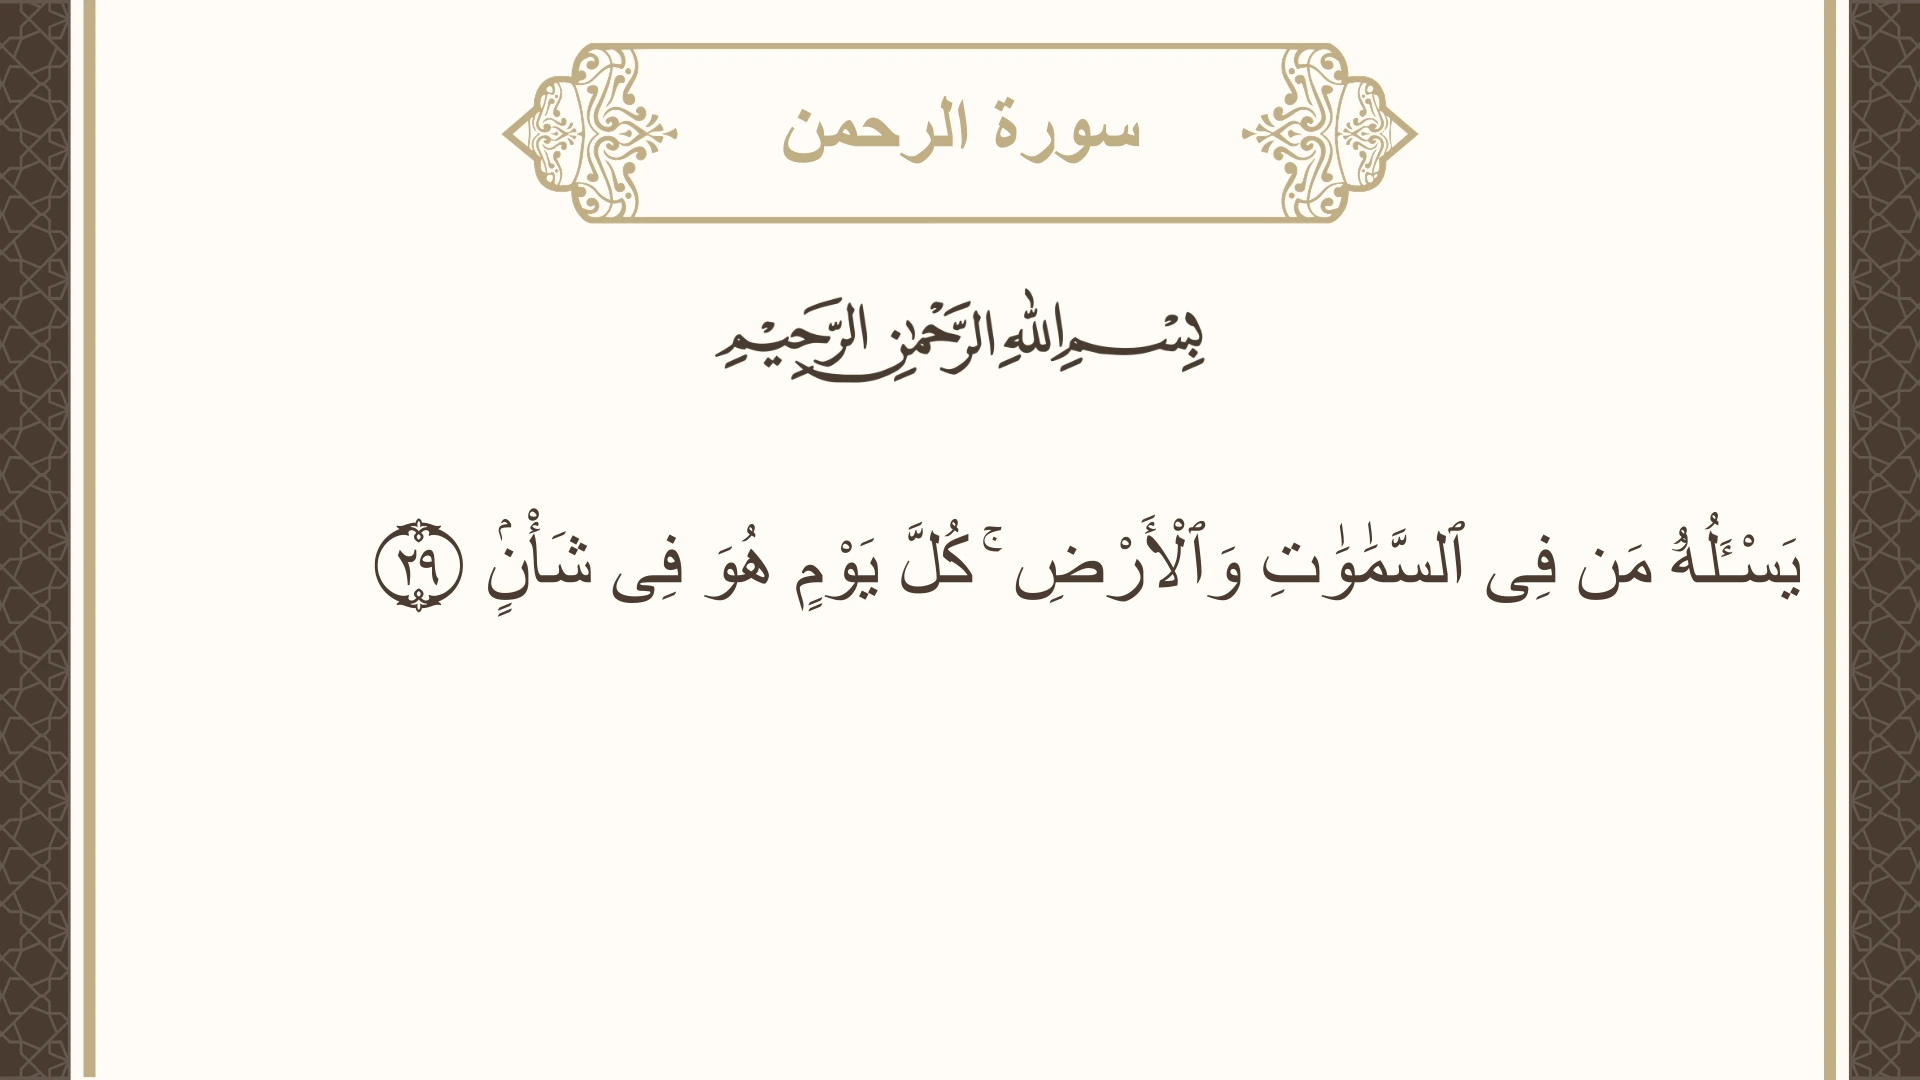 سورة الرحمن
بِسْمِ اللهِ الرَّحْمٰنِ الرَّحِيْمِ
يَسْـَٔلُهُۥ مَن فِى ٱلسَّمَٰوَٰتِ وَٱلْأَرْضِ ۚ كُلَّ يَوْمٍ هُوَ فِى شَأْنٍۢ ٢٩